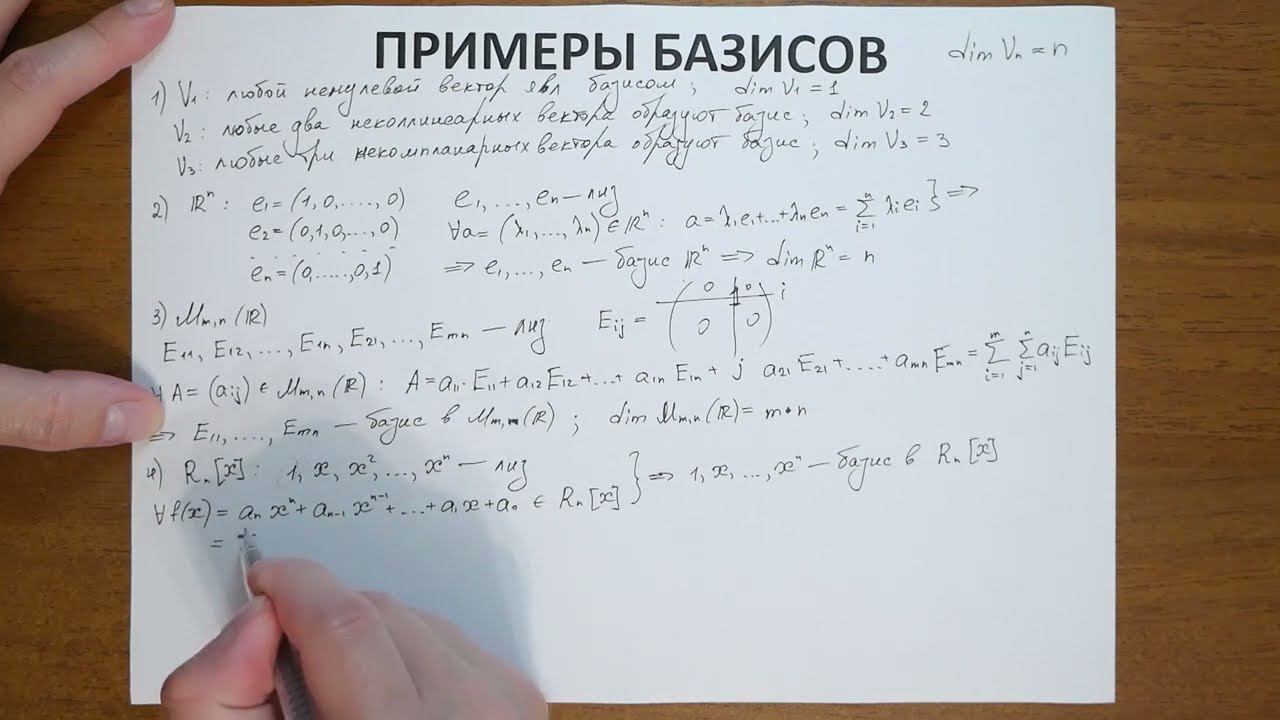 ПРИМЕРЫ БАЗИСОВ
dim Vₙ = n
1) V₁: любой ненулевой вектор явл базисом; dim V₁ = 1
V₂: любые два неколлинеарных вектора образуют базис; dim V₂ = 2
V₃: любые три некомпланарных вектора образуют базис; dim V₃ = 3
2) ℝⁿ: e₁ = (1,0,....,0) e₁,...,eₙ — лнз
e₂ = (0,1,0,...,0) ∀a = (λ₁,...,λₙ) ∈ ℝⁿ: a = λ₁e₁+...+λₙeₙ = ∑ᵢ₌₁ⁿ λᵢeᵢ} ⇒
eₙ = (0,.....,0,1) ⇒ e₁,...,eₙ — базис ℝⁿ ⇒ dim ℝⁿ = n
3) Mₘ,ₙ(ℝ)
E₁₁, E₁₂, ..., E₁ₙ, E₂₁, ..., Eₘₙ — лнз Eᵢⱼ = (0 0 0 0) i j
∀A = (aᵢⱼ) ∈ Mₘ,ₙ(ℝ): A = a₁₁·E₁₁ + a₁₂E₁₂ +...+ a₁ₙE₁ₙ + a₂₁E₂₁ +.....+ aₘₙEₘₙ = ∑ᵢ₌₁ᵐ ∑ⱼ₌₁ⁿ aᵢⱼEᵢⱼ
⇒ E₁₁, ...., Eₘₙ — базис в Mₘ,ₙ(ℝ); dim Mₘ,ₙ(ℝ) = m·n
4) Rₙ[x]: 1, x, x², ..., xⁿ — лнз } ⇒ 1, x, ..., xⁿ — базис в Rₙ[x]
∀f(x) = aₙxⁿ + aₙ₋₁xⁿ⁻¹ +...+ a₁x + a₀ ∈ Rₙ[x]
=